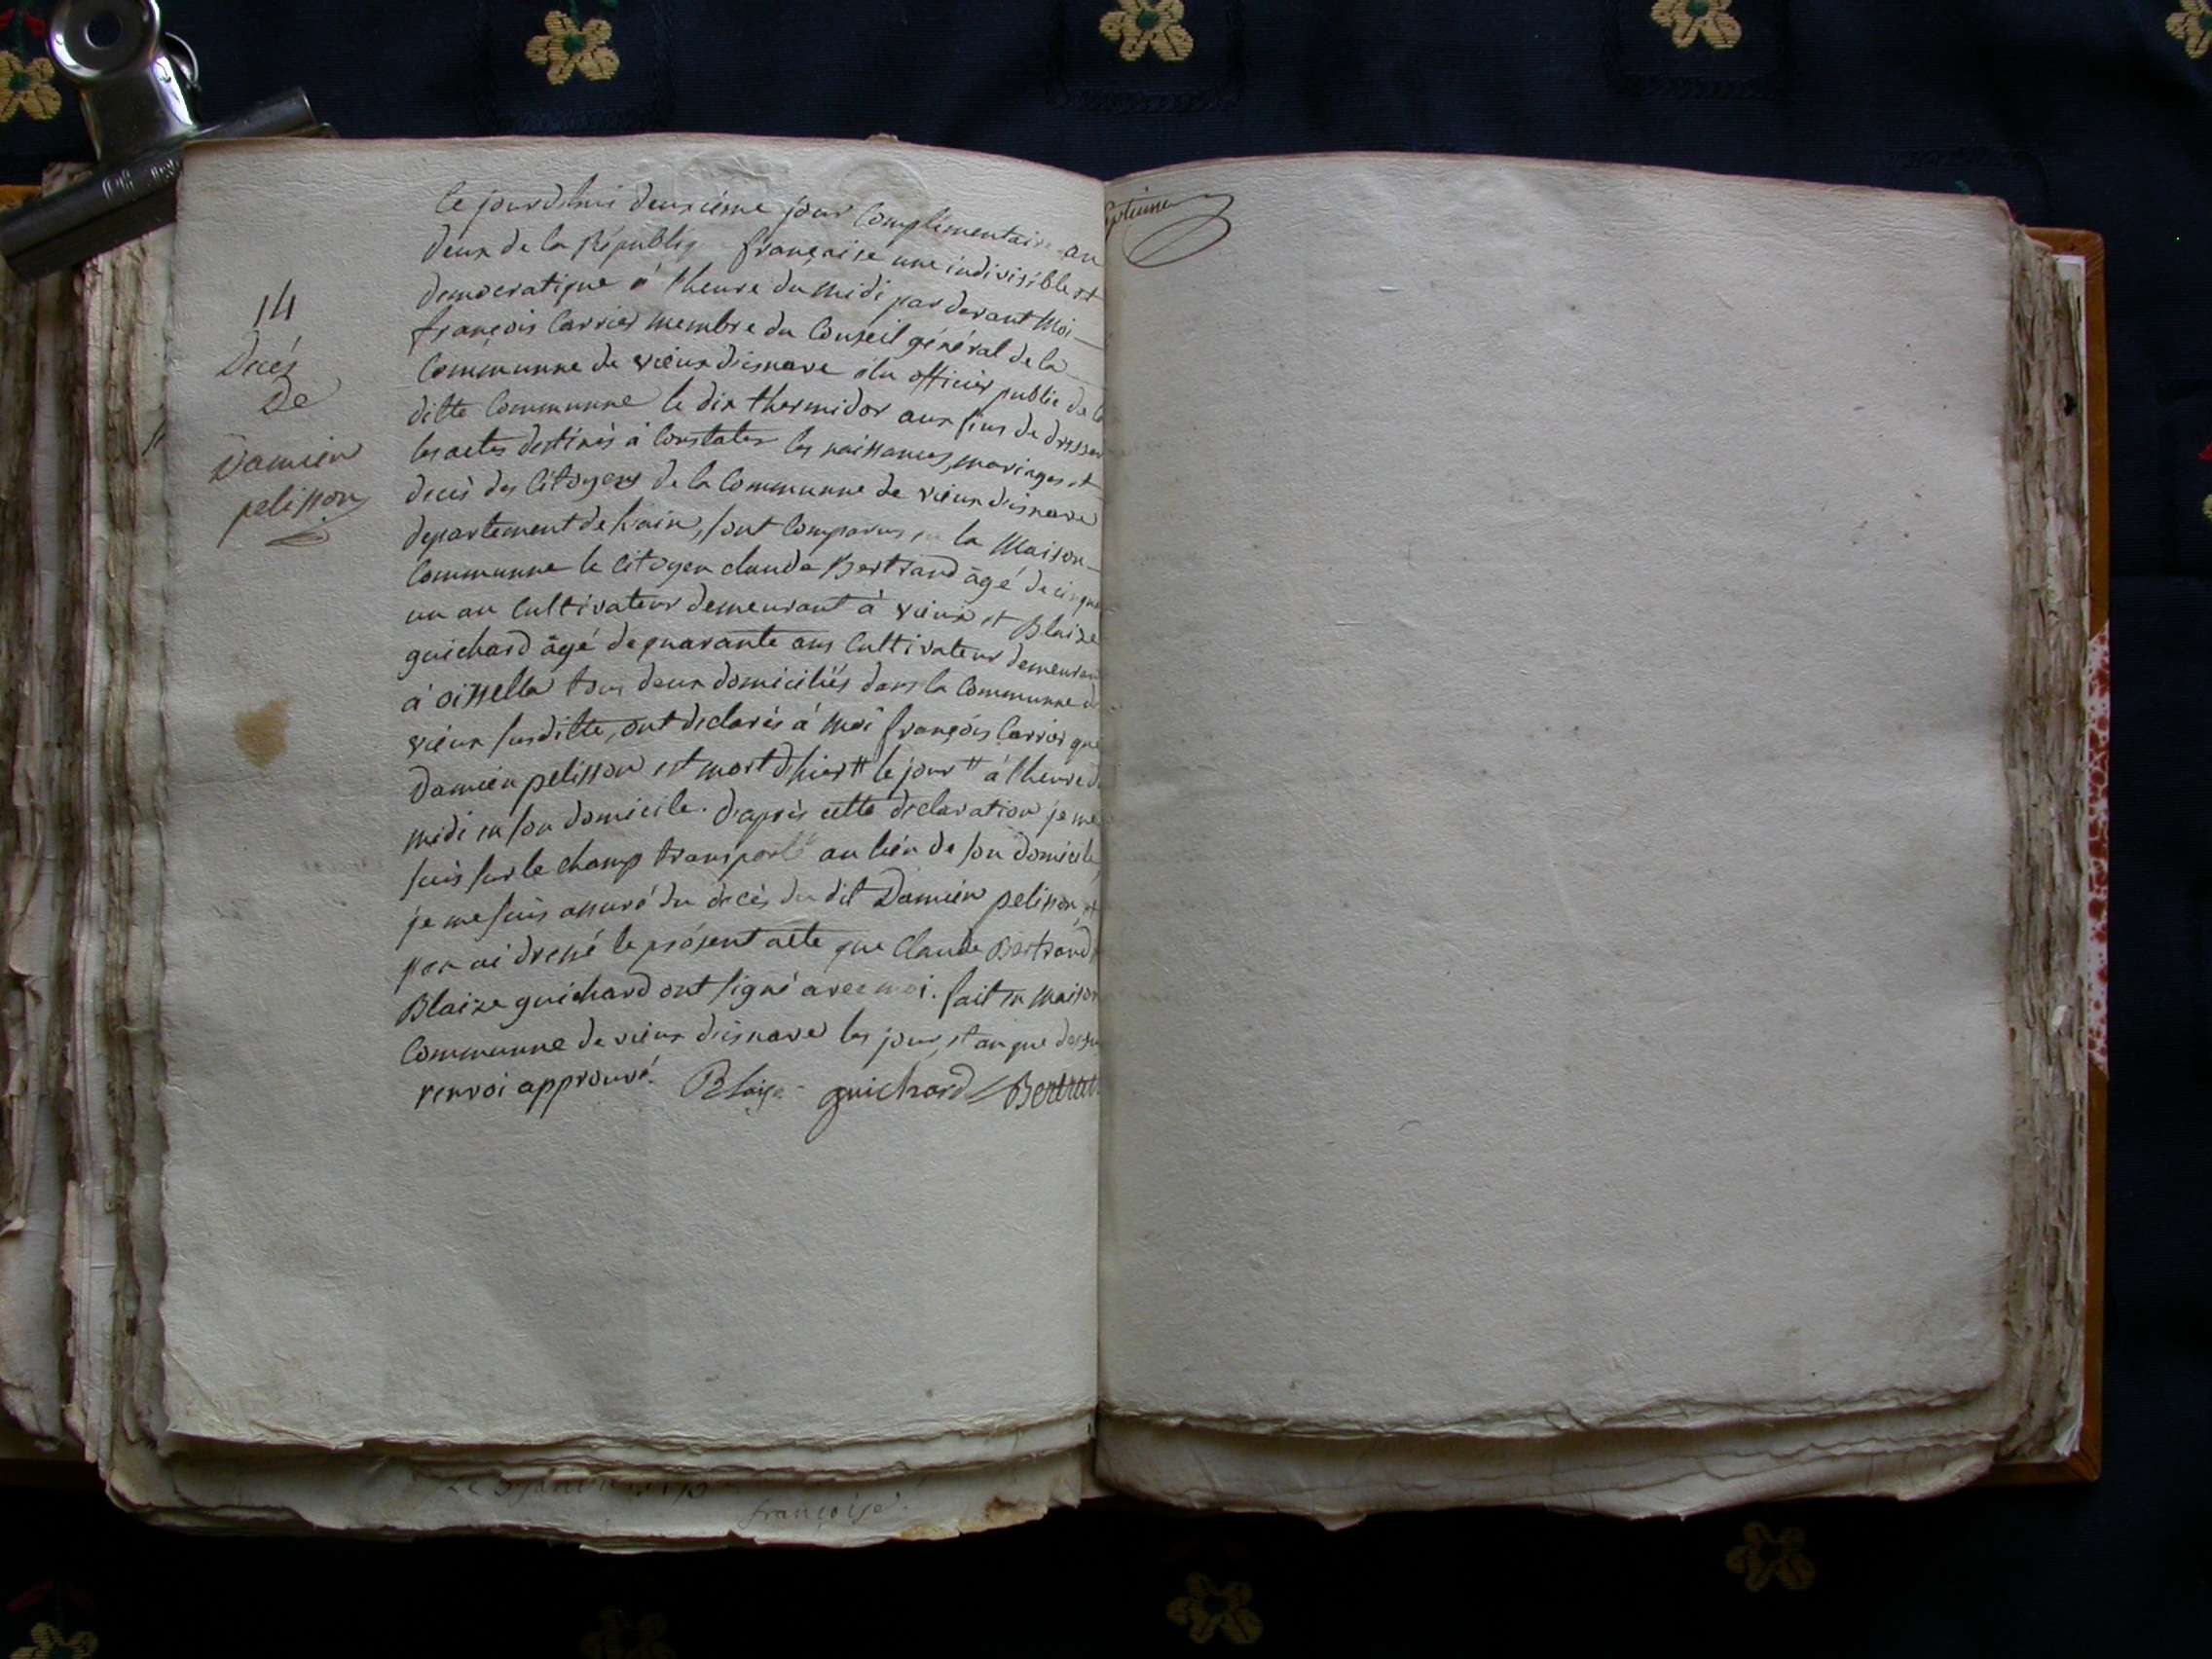 septieme
14
Decés
De
Damien
pelisson
Ce jourdhui deuxième jour Complementaire an
deux de la Républiq française une indivisible et
democratique à l'heure du midi par devant Moi
françois Carrier membre du Conseil général de la
Communne de vieux d'isnave élu officier public de la
ditte Communne le dix thermidor aux fins de dresser
les actes destinés à Constater les naissances, mariages et
decès des Citoyens de la Communne de vieux d'isnave
departement de l'ain, sont Comparus en la Maison
Communne le Citoyen claude Bertrand âgé de cinqua
un an Cultivateur demeurant à vieux et Blaize
guichard âgé de quarante ans Cultivateur demeurant
à oissella tous deux domiciliés dans la Communne de
vieux susditte, ont declarés à moi françois Carrier que
Damien pelisson est mort d'hier # le jour # à l'heure de
midi en son domicile. d'après cette declaration je me
suis sur le champ transporté au lieu de son domicile,
je me suis assuré du decès du dit Damien pelisson, et
j'en ai dressé le présent acte que Claude Bertrand et
Blaize guichard ont signé avec moi. fait en maison
Communne de vieux d'isnave les jour, et an que dessu
renvoi approuvé. Blaise guichard Bertrand
françoise.